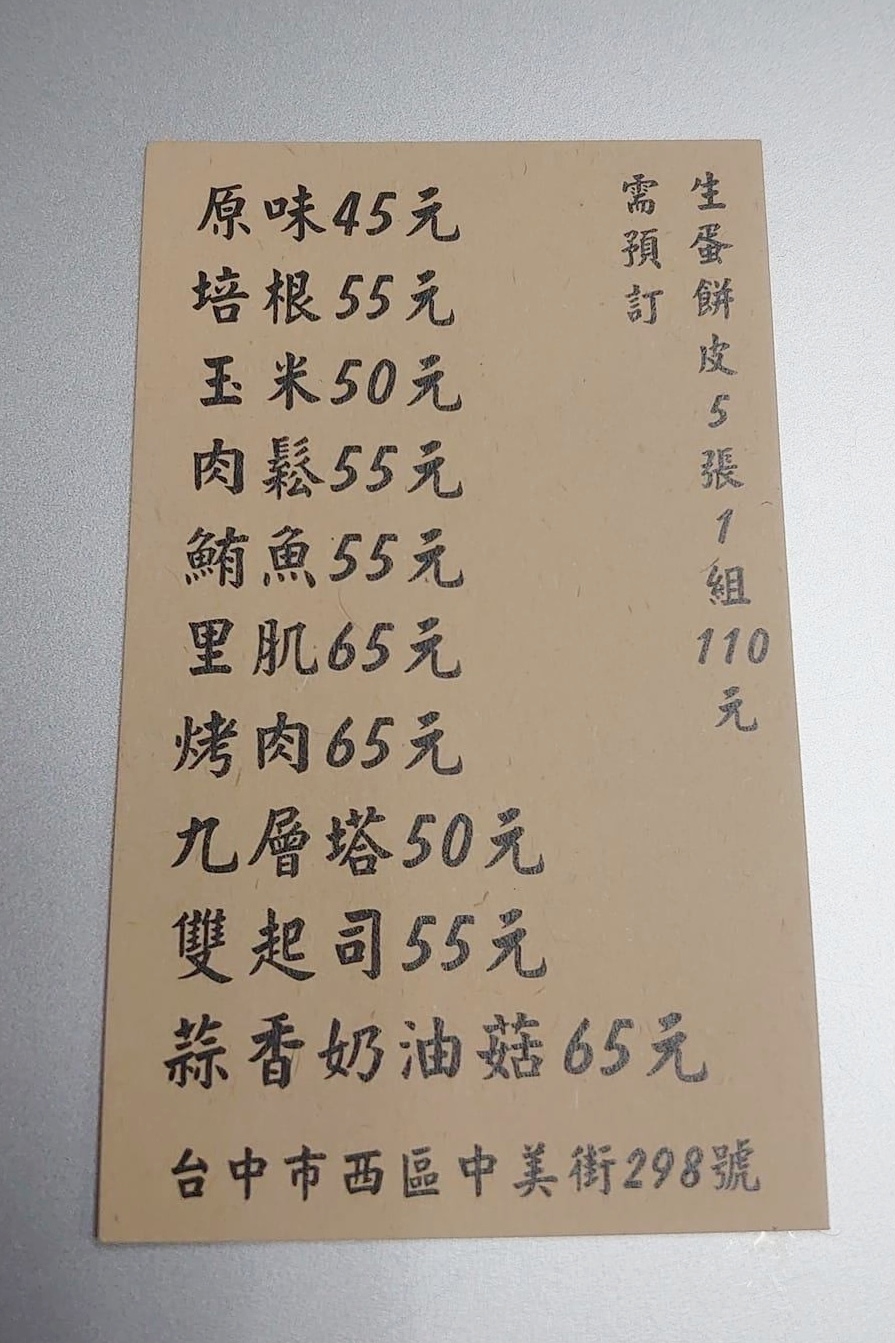 原味45元
培根55元
玉米50元
肉鬆55元
鮪魚55元
里肌65元
烤肉65元
九層塔50元
雙起司55元
蒜香奶油菇65元
生蛋餅皮5張1組110元
需預訂
台中市西區中美街298號